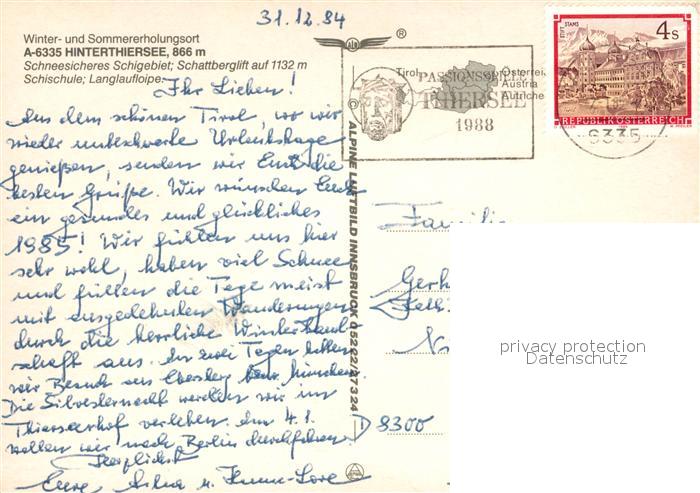 31.12.84
Winter- und Sommererholungsort
A-6335 HINTERTHIERSEE, 866 m
Schneesicheres Schigebiet; Schattberglift auf 1132 m
Schischule; Langlaufloipe.
Ihr Lieben!
Aus dem schönen Tirol, wo wir
wieder unbeschwerte Urlaubstage
genießen, senden wir Euch die
besten Grüße. Wir wünschen Euch
ein gesundes und glückliches
1985! Wir fühlen uns hier
sehr wohl, haben viel Schnee
und füllen die Tage meist
mit ausgedehnten Wanderungen
durch die herrliche Winterland-
schaft aus. In zwei Tagen hatten
wir Besuch aus Ebersberg bzw. München.
Die Silvesternacht werden wir im
Thierseerhof verleben. Am 4.1.
wollen wir nach Berlin durchfahren.
Herzlichst
Eure u. Hanne-Lore
© ALPINE LUFTBILD INNSBRUCK 0 52 22/8 73 24
ALPINE
®
Tirol
PASSIONSSPIELE
THIERSEE
1988
Österrei
Austria
Autriche
STIFT STAMS
4 S
REPUBLIK ÖSTERREICH
6335
Familie
Gerh
D 8300
privacy protection
Datenschutz